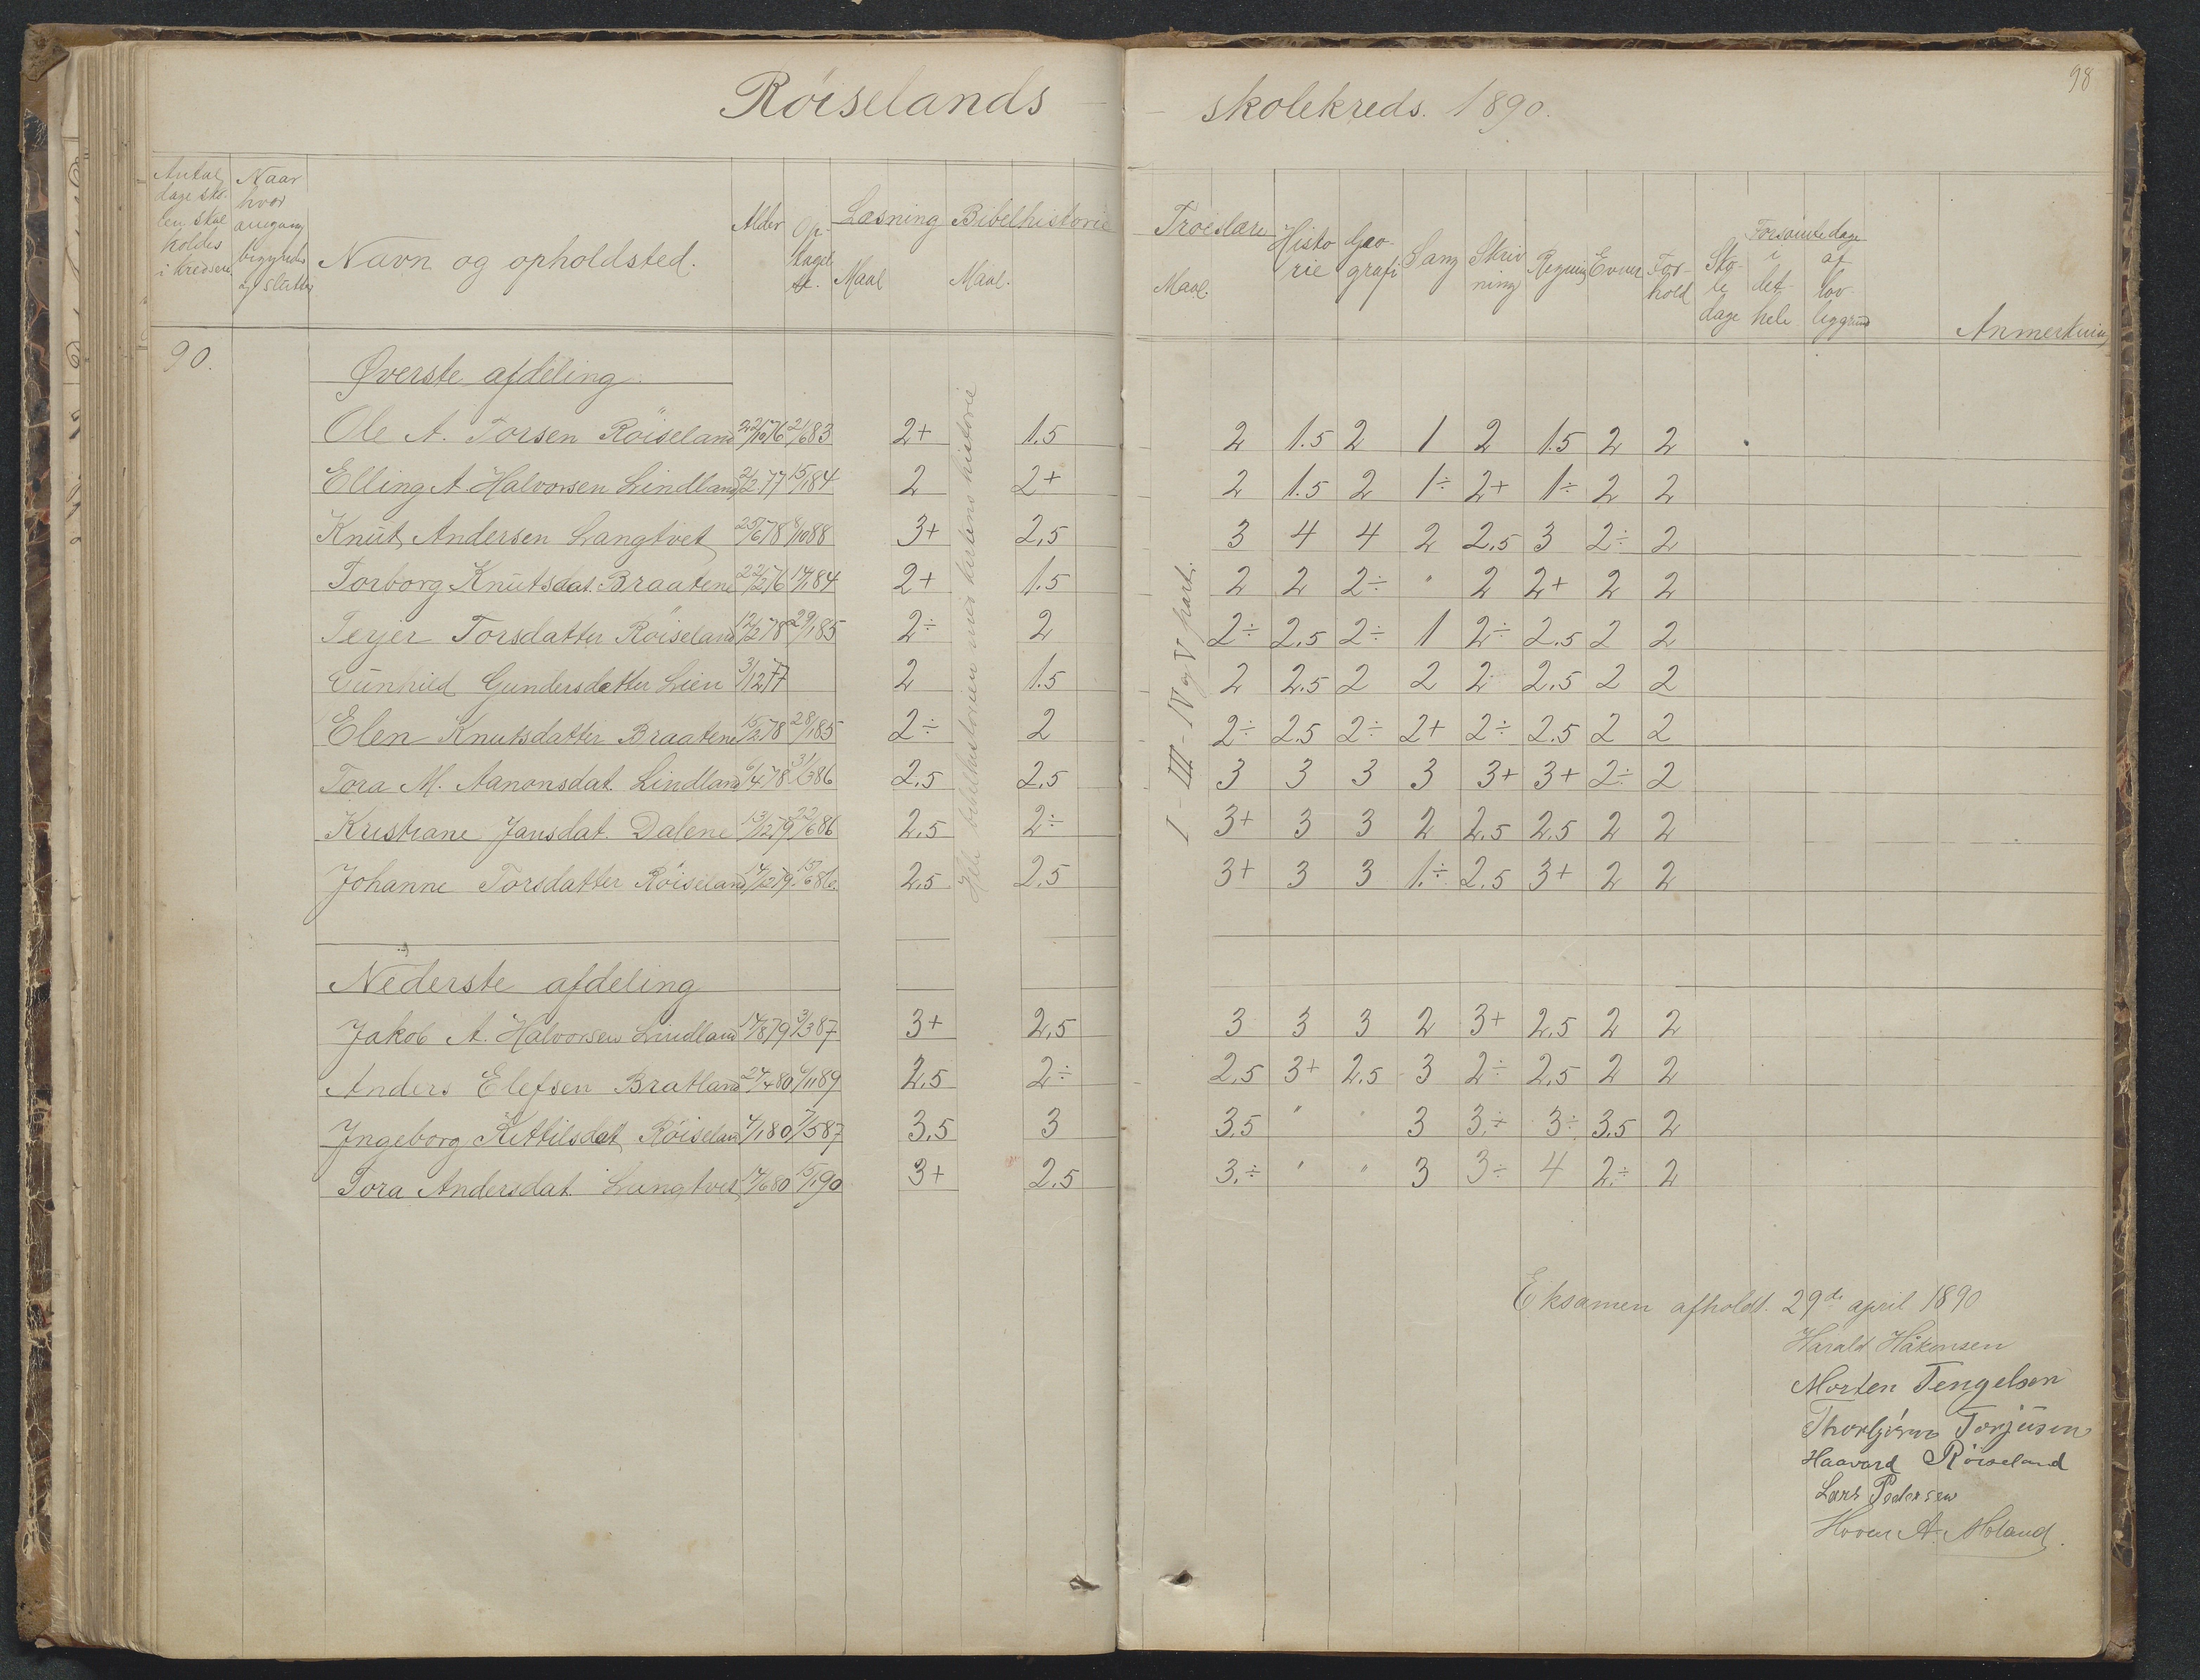 98
Röiselands - - skolekreds. 1890.
Antal dage sko- len skal holdes i kredsen
Naar hver omgang begyndes og sluttes
Navn og opholdsted.
Alder
Op- taget
Læsning Maal
Bibelhistorie Maal.
Troeslære Maal.
Histo rie
Geo- grafi
Sang
Skriv ning
Regning
Evner
For- hold
Sko- le dage
Forsømte dage
i det hele
af lov- lig grund
Anmerkning
90.
Øverste afdeling
Ole A. Torsen Röiseland 22/10 76 2/6 83 2+ 1.5 2 1.5 2 1 2 1.5 2 2
Elling A Halvorsen Lindland 2/2 77 15/1 84 2 2+ 2 1.5 2 1÷ 2+ 1÷ 2 2
Knut Andersen Langtvet 25/6 78 8/10 88 3+ 2,5 3 4 4 2 2,5 3 2÷ 2
Torborg Knutsdat. Braatene 22/2 76 14/1 84 2+ 1.5 2 2 2÷ " 2 2+ 2 2
Terjer Torsdatter Röiseland 12/2 78 29/1 85 2÷ 2 2÷ 2.5 2÷ 1 2÷ 2.5 2 2
Gunhild Gundersdatter Lien 3/12 77 2 1.5 2 2.5 2 2 2 2.5 2 2
Elen Knutsdatter Braatene 15/2 78 28/1 85 2÷ 2 2÷ 2.5 2÷ 2+ 2÷ 2.5 2 2
Tora M. Aanonsdat. Lindland 6/4 78 3/3 86 2.5 2,5 3 3 3 3 3+ 3+ 2÷ 2
Kristiane Jansdat. Dalene 13/12 79 22/6 86 2.5 2÷ 3+ 3 3 2 2.5 2.5 2 2
Johanne Torsdatter Röiseland 14/12 79 15/6 86 2.5 2.5 3+ 3 3 1.÷ 2.5 3+ 2 2
Hele bibelhistorien med kirkens historie
I - III - IV og V part.
Nederste afdeling
Jakob A. Halvorsen Lindland 14/8 79 3/3 87 3+ 2,5 3 3 3 2 3+ 2,5 2 2
Anders Elefsen Bratland 24/4 80 6/11 89 2.5 2÷ 2.5 3+ 2.5 3 2÷ 2.5 2 2
Ingeborg Kittilsdat Röiseland 4/1 80 7/5 87 3.5 3 3.5 " " 3 3.÷ 3÷ 3.5 2
Tora Andersdat. Langtvet 14/6 80 15/1 90 3+ 2.5 3.÷ " " 3 3÷ 4 2÷ 2
Eksamen afholdt. 29de april 1890
Harald Håkonsen
Morten Tengelsen
Thorbjörn Torjusen
Haavard Röiseland
Lars Pedersen
A. Moland.